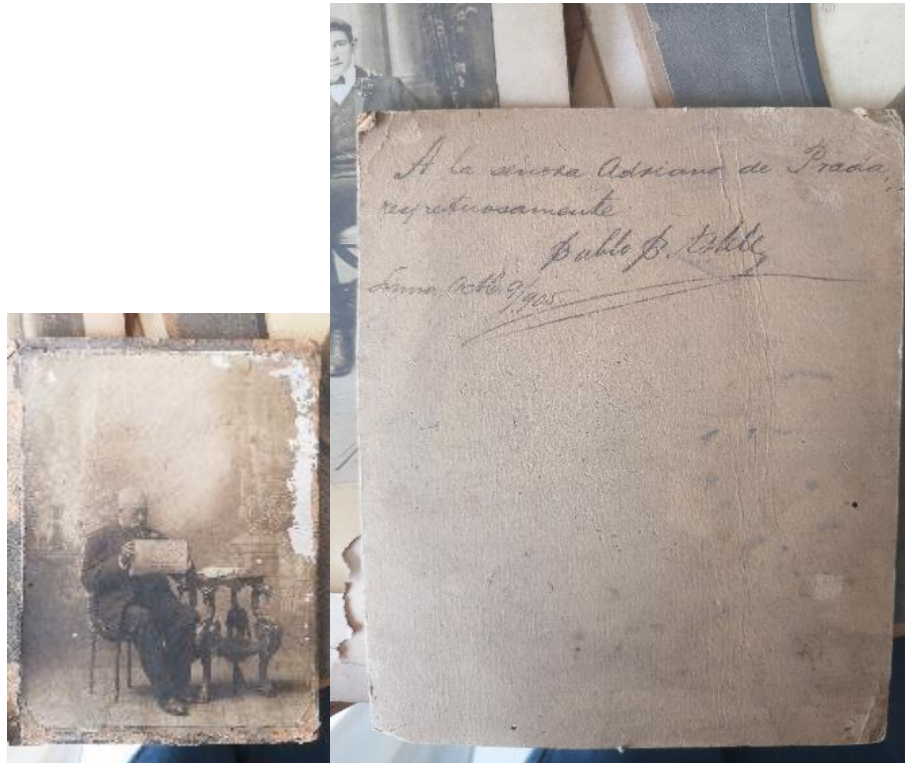 A la señora Adriana de Prada,
respetuosamente
Pablo P. Astete
Lima, Octbe. 9/905